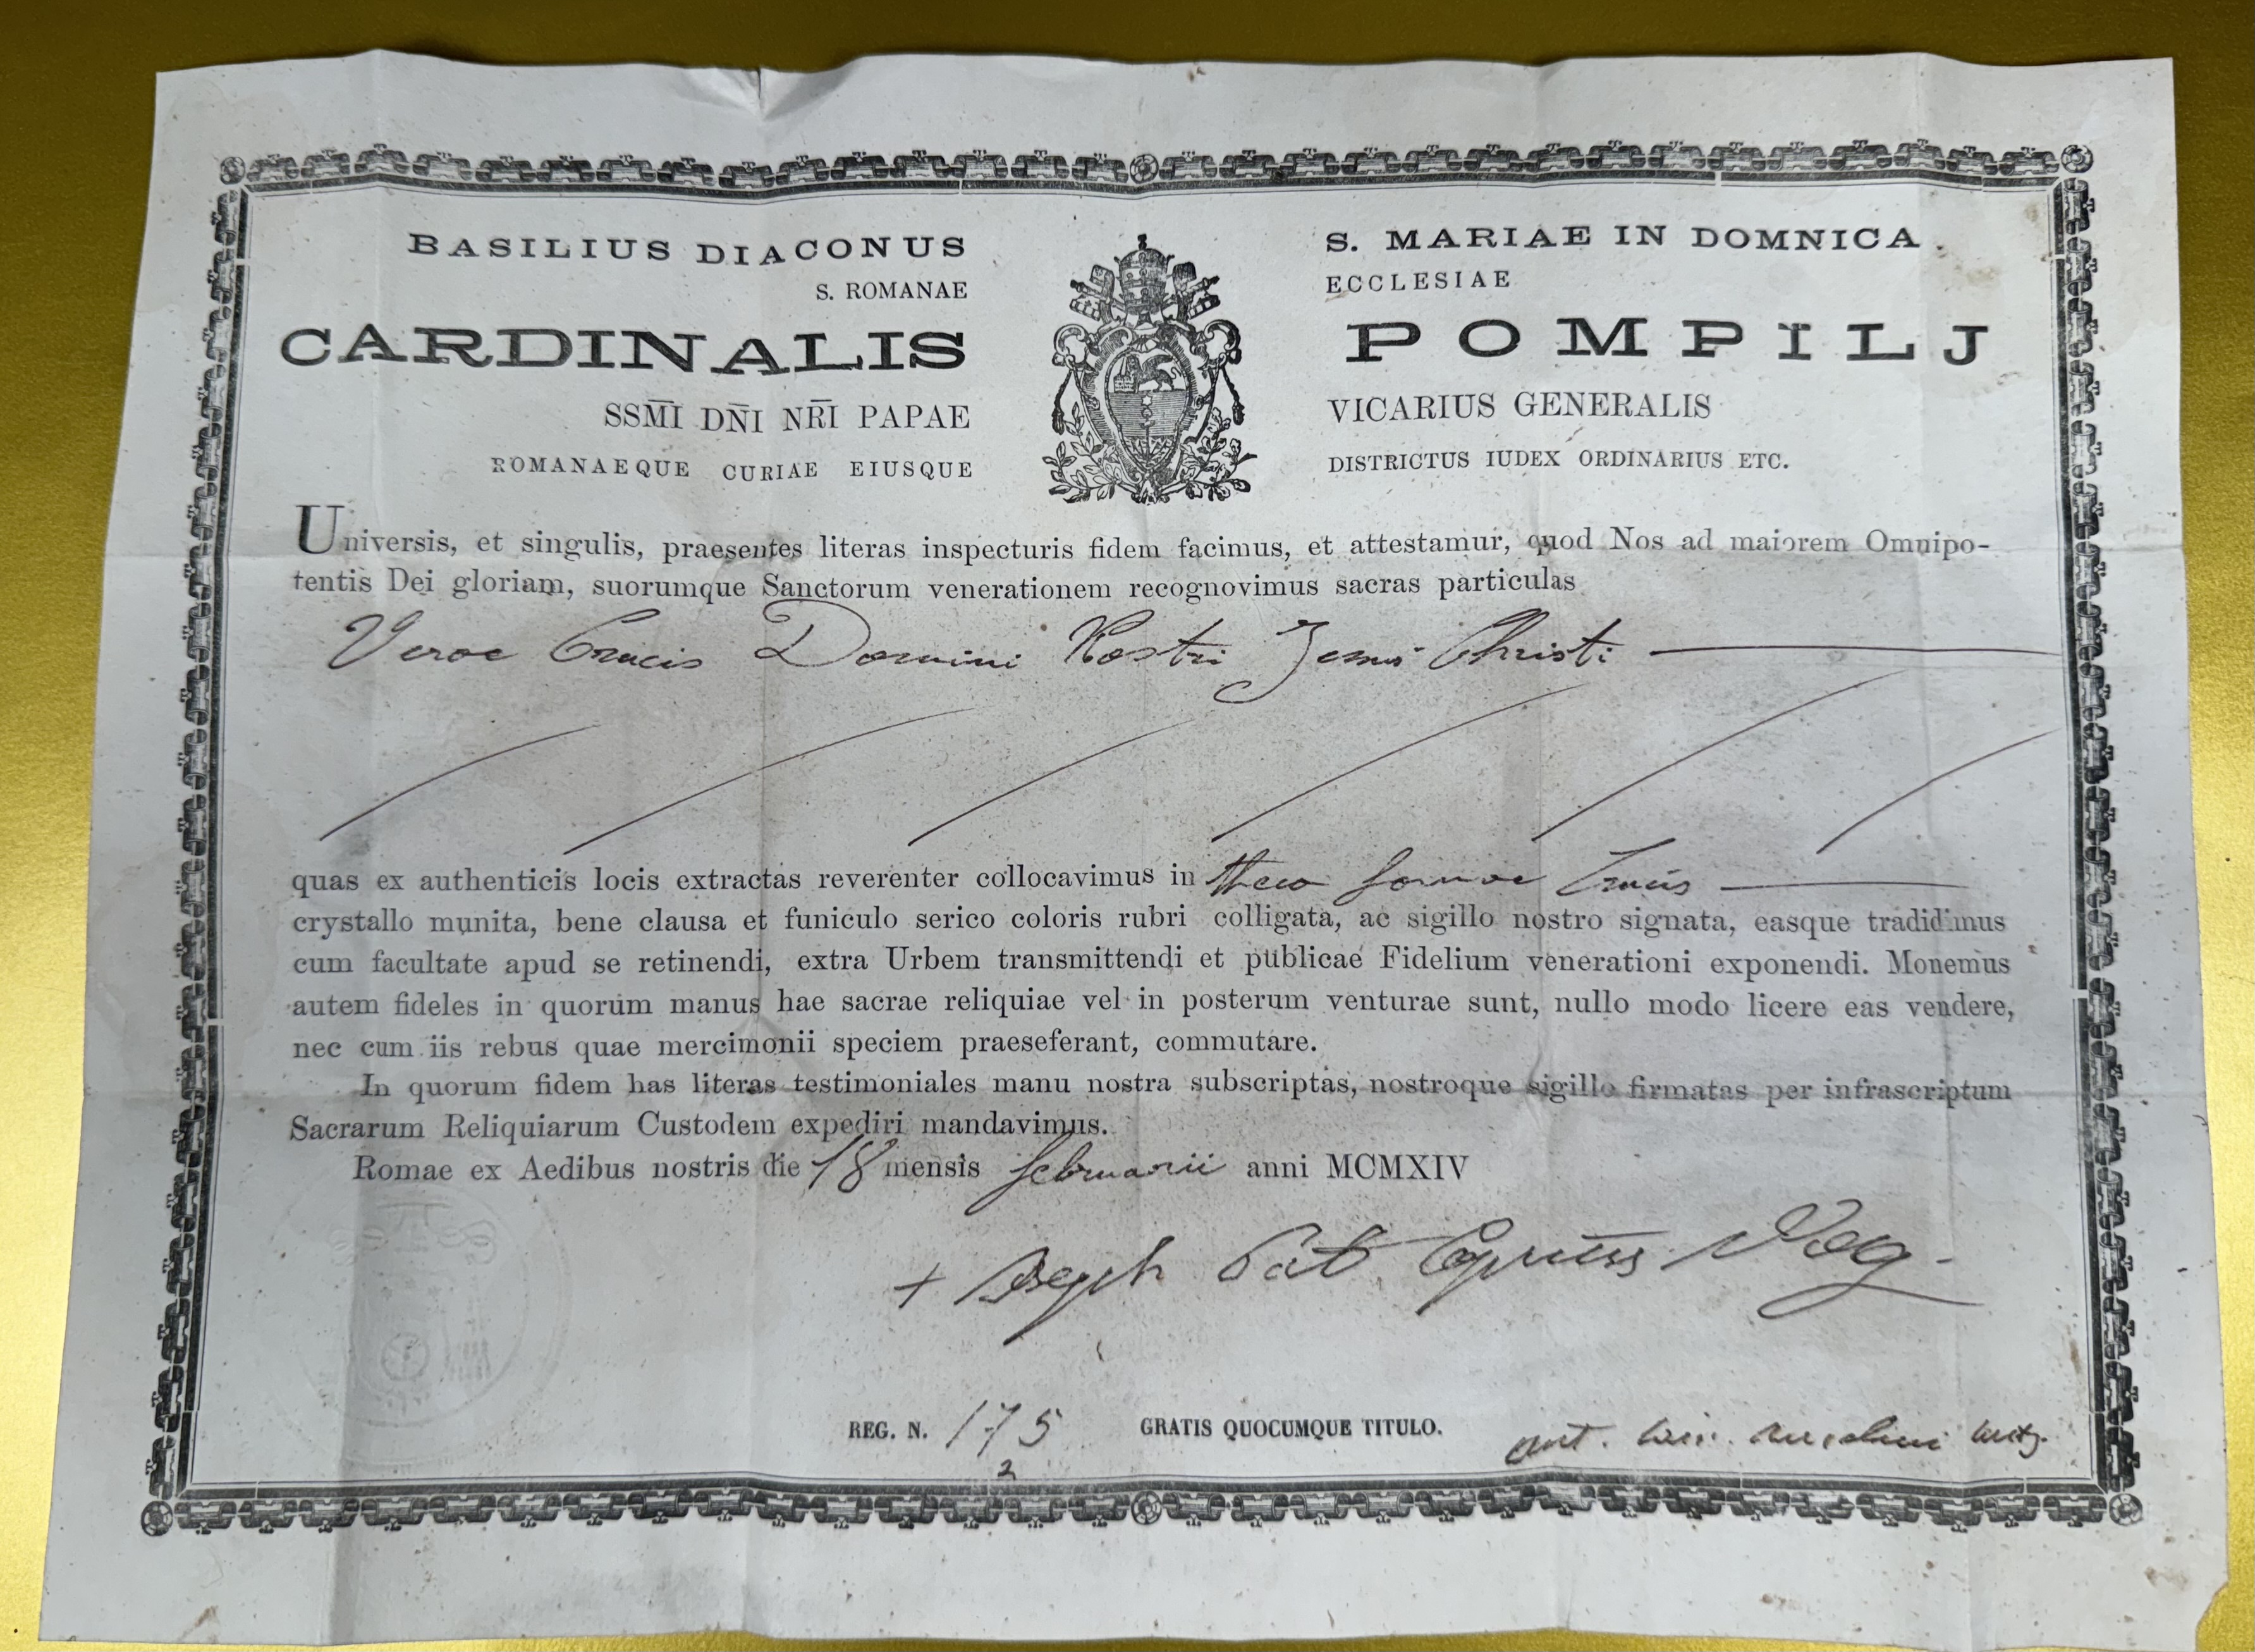 BASILIUS DIACONUS S. MARIAE IN DOMNICA
S. ROMANAE ECCLESIAE
CARDINALIS POMPILJ
SSM̅I DN̅I NR̅I PAPAE VICARIUS GENERALIS
ROMANAEQUE CURIAE EIUSQUE DISTRICTUS IUDEX ORDINARIUS ETC.
Universis, et singulis, praesentes literas inspecturis fidem facimus, et attestamur, quod Nos ad maiorem Omnipo-
tentis Dei gloriam, suorumque Sanctorum venerationem recognovimus sacras particulas
Verae Crucis Domini Nostri Jesus Christi
quas ex authenticis locis extractas reverenter collocavimus in theca formae Crucis
crystallo munita, bene clausa et funiculo serico coloris rubri colligata, ac sigillo nostro signata, easque tradidimus
cum facultate apud se retinendi, extra Urbem transmittendi et publicae Fidelium venerationi exponendi. Monemus
autem fideles in quorum manus hae sacrae reliquiae vel in posterum venturae sunt, nullo modo licere eas vendere,
nec cum iis rebus quae mercimonii speciem praeseferant, commutare.
In quorum fidem has literas testimoniales manu nostra subscriptas, nostroque sigillo firmatas per infrascriptum
Sacrarum Reliquiarum Custodem expediri mandavimus.
Romae ex Aedibus nostris die 18 mensis februarii anni MCMXIV
+ Joseph Pat. Vsg.
REG. N. 175 GRATIS QUOCUMQUE TITULO.
2